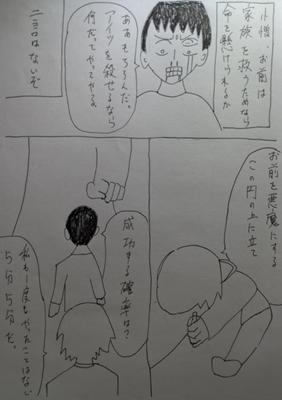 小僧、お前は
家族を救うためなら
命を懸けられるか
ああもちろんだ。
アイツを殺せるなら
何だってやってやる。
二言はないぞ
お前を悪魔にする
この円の上に立て
成功する確率は？
私も一度もやったことはない
5分5分だ。